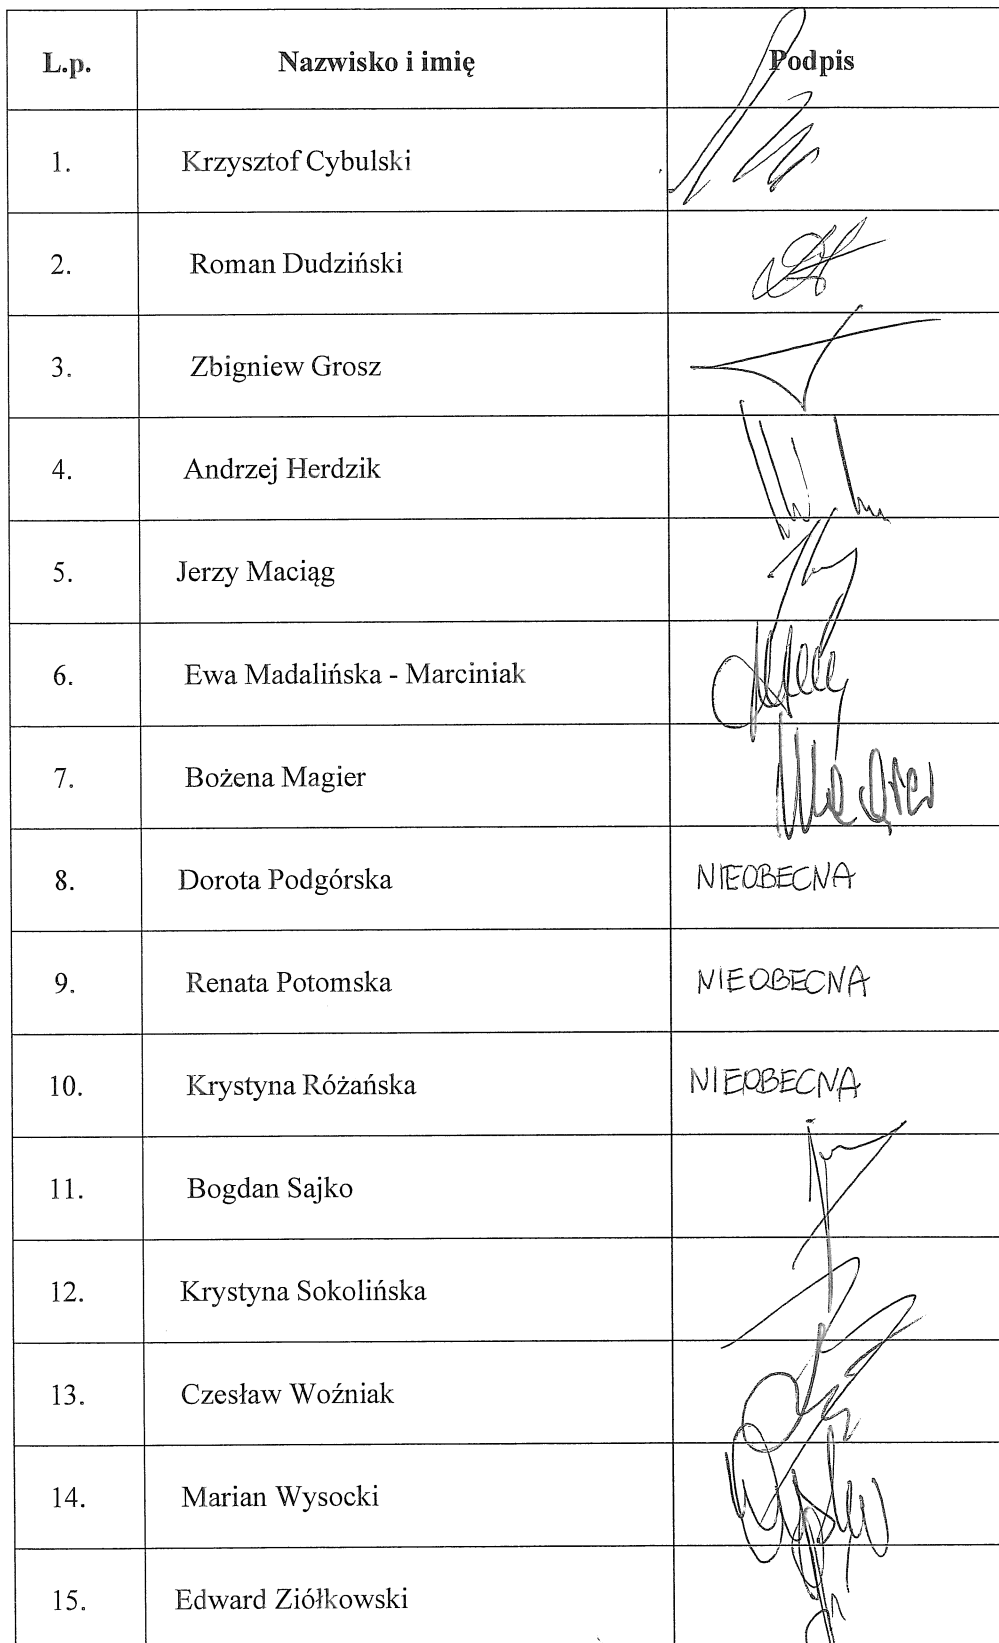 L.p. Nazwisko i imię Podpis
1. Krzysztof Cybulski
2. Roman Dudziński
3. Zbigniew Grosz
4. Andrzej Herdzik
5. Jerzy Maciąg
6. Ewa Madalińska - Marciniak
7. Bożena Magier
8. Dorota Podgórska NIEOBECNA
9. Renata Potomska NIEOBECNA
10. Krystyna Różańska NIEOBECNA
11. Bogdan Sajko
12. Krystyna Sokolińska
13. Czesław Woźniak
14. Marian Wysocki
15. Edward Ziółkowski